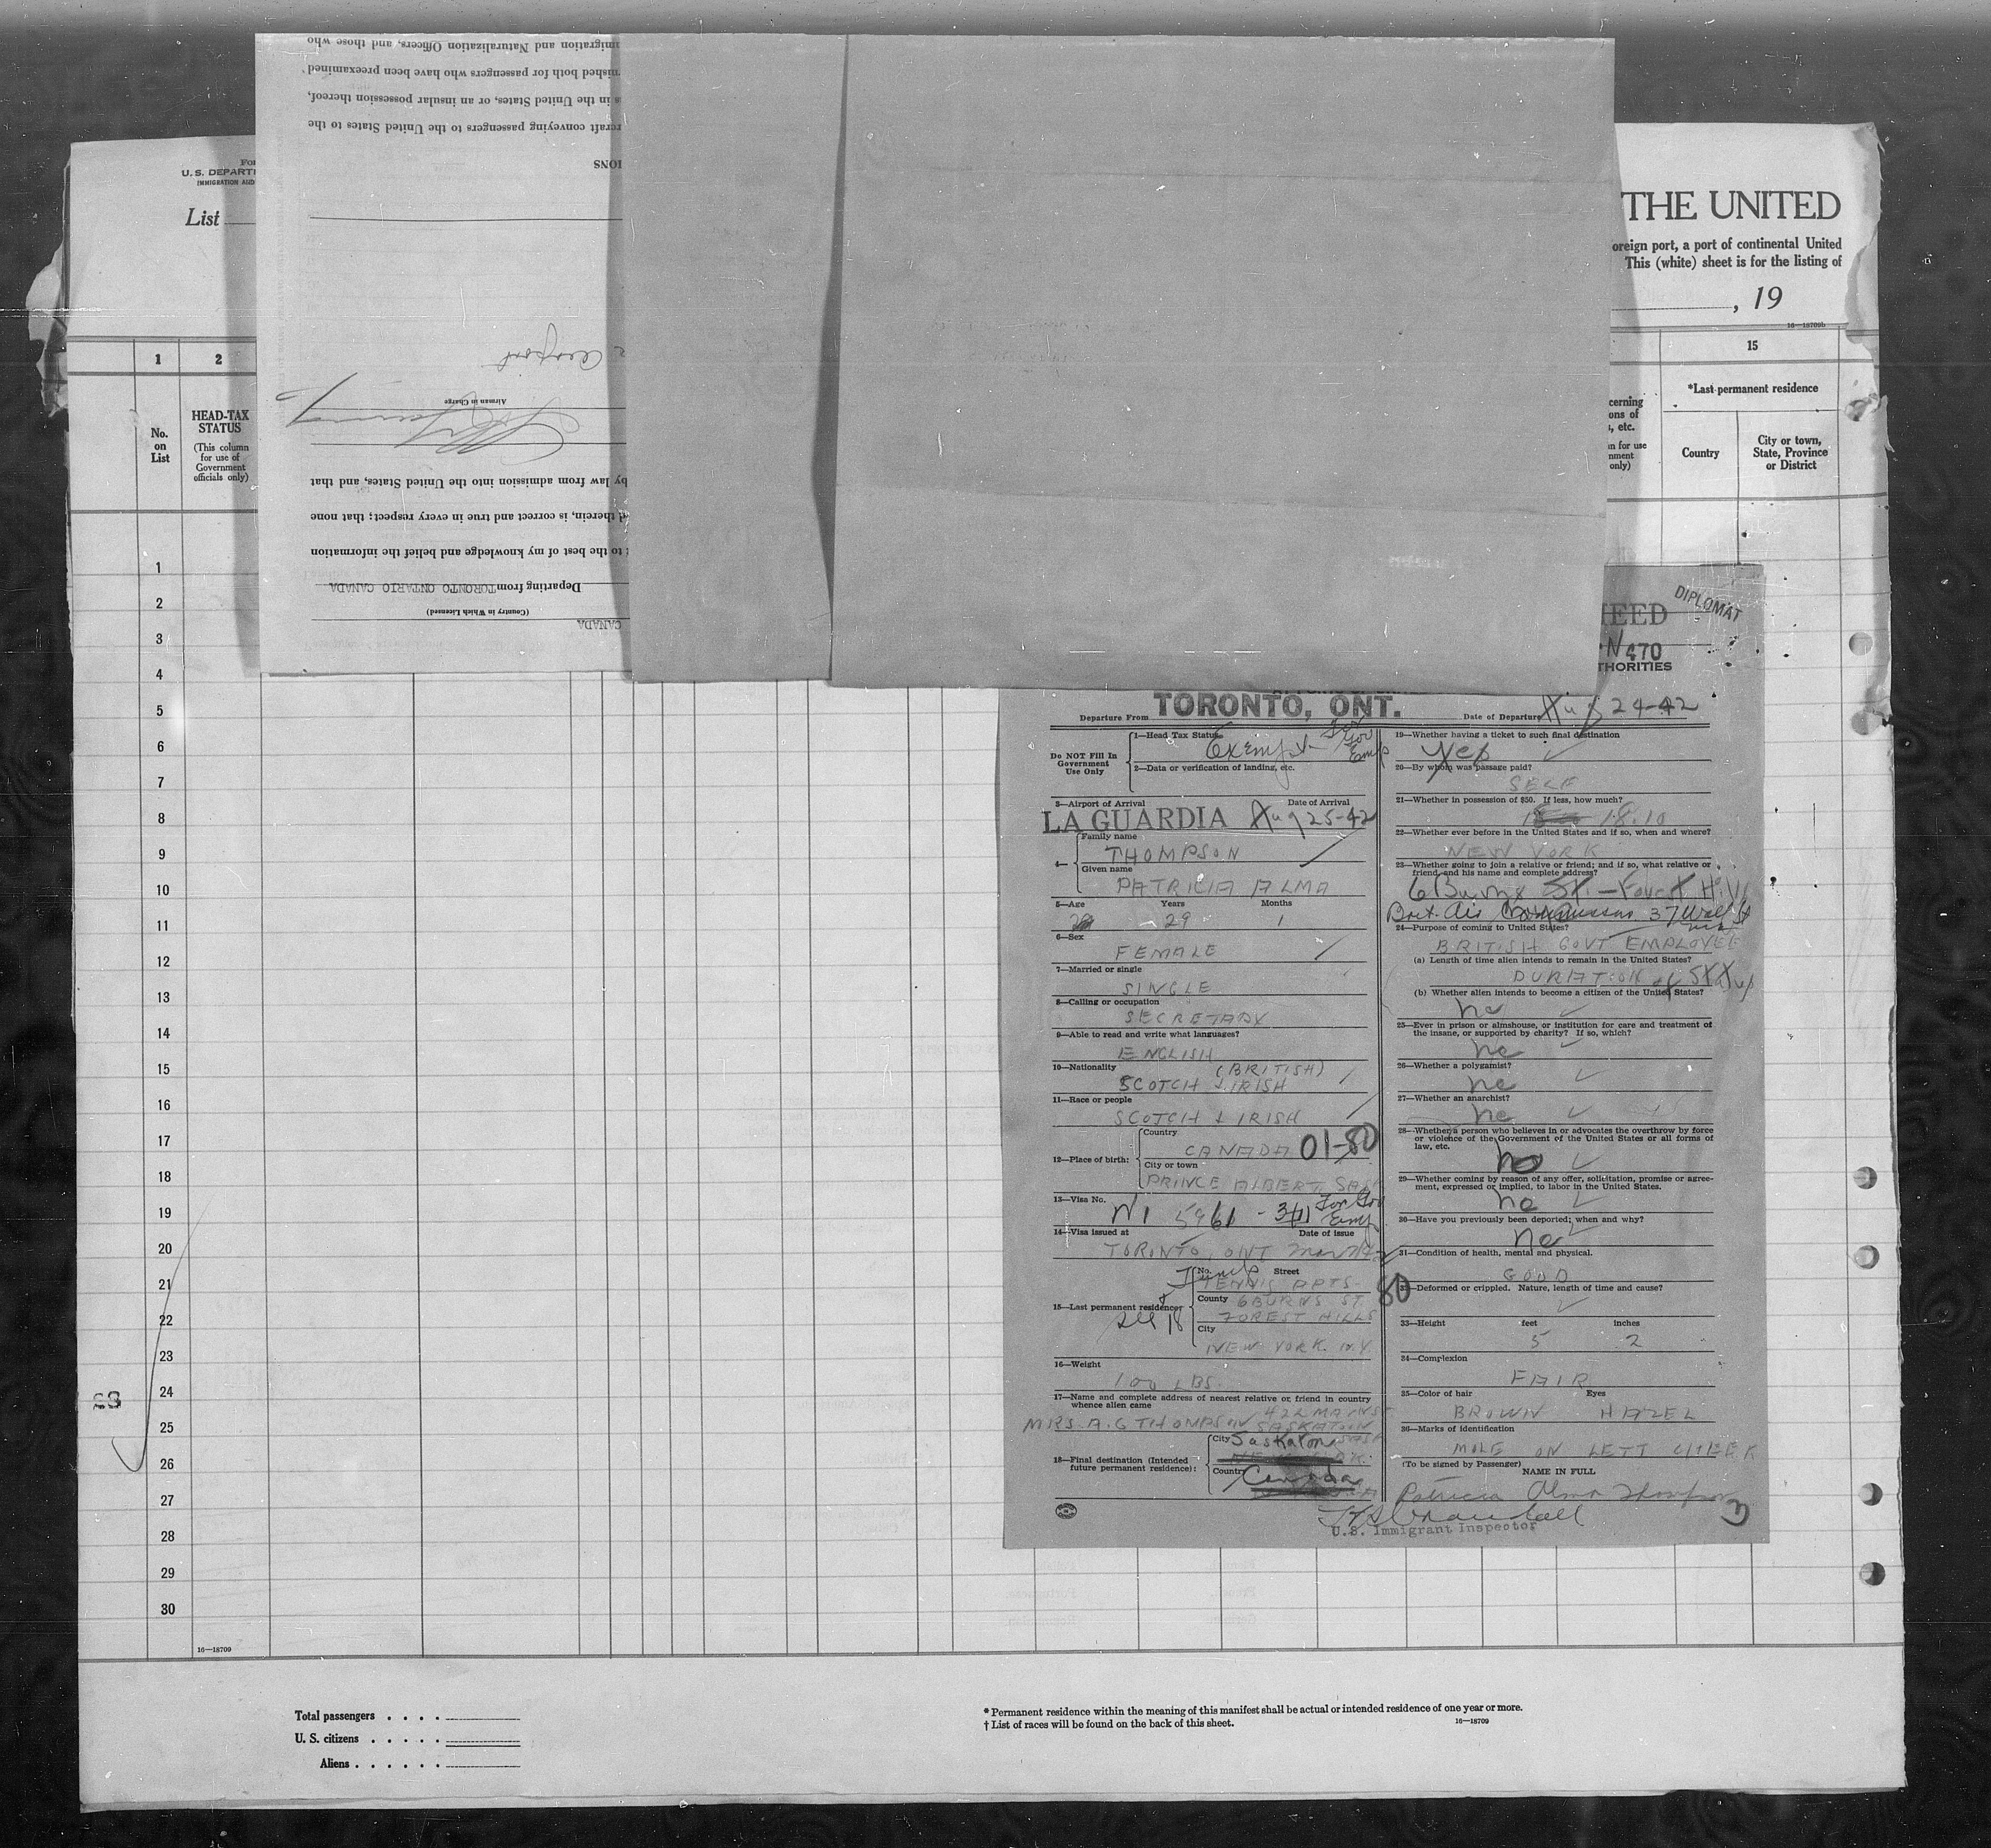 migration and Naturalization Officers, and those who
nished both for passengers who have been preexamined
s in the United States, or an insular possession thereof,
rcraft conveying passengers to the United States to the
IONS
Airport
Airman in Charge
by law from admission into the United States, and that
d therein, is correct and true in every respect; that none
to the best of my knowledge and belief the information
Departing from TORONTO ONTARIO CANADA
(Country in Which Licensed)
CANADA
For
U. S. DEPARTM
IMMIGRATION AND
List
THE UNITED
oreign port, a port of continental United
This (white) sheet is for the listing of
, 19
16—18709b
1 2 15
No.
on
List
HEAD-TAX
STATUS
(This column
for use of
Government
officials only)
cerning
ons of
, etc.
n for use
nment
only)
*Last permanent residence
Country
City or town,
State, Province
or District
1
2
3
4
5
6
7
8
9
10
11
12
13
14
15
16
17
18
19
20
21
22
23
24
25
26
27
28
29
30
16—18709
DIPLOMAT
N 470
THORITIES
Departure From TORONTO, ONT.
Date of Departure Aug 24-42
Do NOT Fill In
Government
Use Only
1—Head Tax Status Exempt - For Gov Emp
2—Data or verification of landing, etc.
3—Airport of Arrival Date of Arrival
LA GUARDIA Aug 25-42
4—
Family name
THOMPSON
Given name
PATRICIA ALMA
5—Age Years Months
29 1
6—Sex
FEMALE
7—Married or single
SINGLE
8—Calling or occupation
SECRETARY
9—Able to read and write what languages?
ENGLISH
10—Nationality (BRITISH)
SCOTCH & IRISH
11—Race or people
SCOTCH & IRISH
12—Place of birth:
Country
CANADA 01-80
City or town
PRINCE ALBERT, SASK
13—Visa No. For Gov
Emp
14—Visa issued at Date of issue
TORONTO, ONT
15—Last permanent residence:
No. Street
TENNIS APTS
County 6 BURNS ST
FOREST HILLS
City
NEW YORK. N.Y.
16—Weight
100 LBS.
17—Name and complete address of nearest relative or friend in country
whence alien came
MRS. A. G THOMPSON SASKATOON
18—Final destination (Intended
future permanent residence):
City Saskatoon SASK
Country Canada
19—Whether having a ticket to such final destination
Yes
20—By whom was passage paid?
SELF
21—Whether in possession of $50. If less, how much?
18.10
22—Whether ever before in the United States and if so, when and where?
NEW YORK
23—Whether going to join a relative or friend; and if so, what relative or
friend, and his name and complete address?
6 Burns St. — Forest Hills
Brit. Air Commission 37 Wall St
24—Purpose of coming to United States?
BRITISH GOVT EMPLOYEE
(a) Length of time alien intends to remain in the United States?
DURATION of Status
(b) Whether alien intends to become a citizen of the United States?
no
25—Ever in prison or almshouse, or institution for care and treatment of
the insane, or supported by charity? If so, which?
no
26—Whether a polygamist?
no
27—Whether an anarchist?
no
28—Whether a person who believes in or advocates the overthrow by force
or violence of the Government of the United States or all forms of
law, etc.
no
29—Whether coming by reason of any offer, solicitation, promise or agree-
ment, expressed or implied, to labor in the United States.
no
30—Have you previously been deported; when and why?
no
31—Condition of health, mental and physical.
GOOD
80
32—Deformed or crippled. Nature, length of time and cause?
33—Height feet inches
5 2
34—Complexion
FAIR
35—Color of hair Eyes
BROWN HAZEL
36—Marks of identification
MOLE ON LEFT CHEEK
(To be signed by Passenger)
NAME IN FULL
Patricia Alma Thompson
U.S. Immigrant Inspector
Total passengers . . . .
U. S. citizens . . . . .
Aliens . . . . . .
* Permanent residence within the meaning of this manifest shall be actual or intended residence of one year or more.
† List of races will be found on the back of this sheet.
16—18709